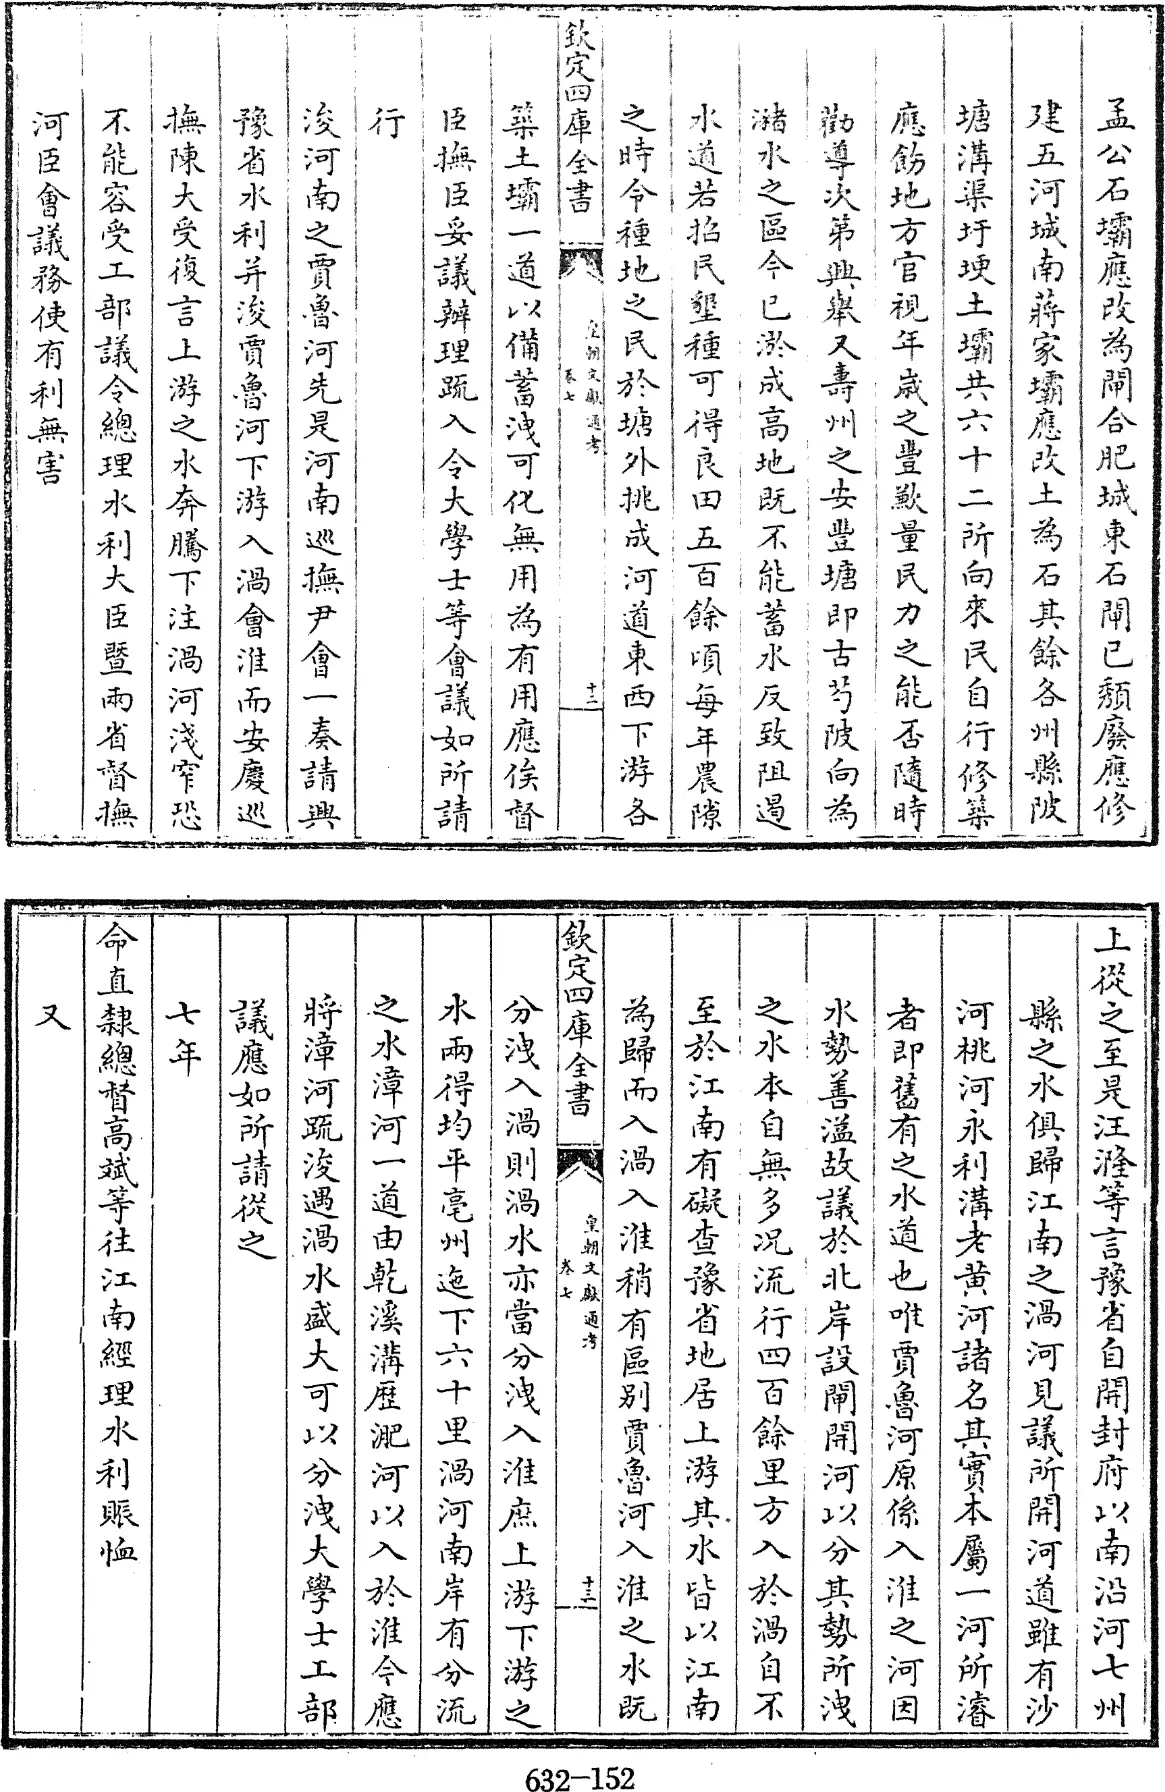 孟公石壩應改為閘合肥城東石閘已頽廢應修
建五河城南蔣家壩應改土為石其餘各州縣陂
塘溝渠圩埂土壩共六十二所向來民自行修築
應飭地方官視年歲之豐歉量民力之能否隨時
勸導次第興舉又壽州之安豐塘即古芍陂向為
瀦水之區今已淤成高地既不能蓄水反致阻遏
水道若招民墾種可得良田五百餘頃每年農隙
之時令種地之民於塘外挑成河道東西下游各
欽定四庫全書
皇朝文獻通考
卷七
十二
築土壩一道以備蓄洩可化無用為有用應俟督
臣撫臣妥議辦理疏入令大學士等會議如所請
行
浚河南之賈魯河先是河南巡撫尹會一奏請興
豫省水利并浚賈魯河下游入渦會淮而安慶巡
撫陳大受復言上游之水奔騰下注渦河淺窄恐
不能容受工部議令總理水利大臣暨兩省督撫
河臣會議務使有利無害
上從之至是汪漋等言豫省自開封府以南沿河七州
縣之水俱歸江南之渦河見議所開河道雖有沙
河桃河永利溝老黃河諸名其實本屬一河所濬
者即舊有之水道也唯賈魯河原係入淮之河因
水勢善溢故議於北岸設閘開河以分其勢所洩
之水本自無多況流行四百餘里方入於渦自不
至於江南有礙查豫省地居上游其水皆以江南
為歸而入渦入淮稍有區别賈魯河入淮之水既
欽定四庫全書
皇朝文獻通考
卷七
十三
分洩入渦則渦水亦當分洩入淮庶上游下游之
水兩得均平亳州迤下六十里渦河南岸有分流
之水漳河一道由乾溪溝歷淝河以入於淮今應
將漳河疏浚遇渦水盛大可以分洩大學士工部
議應如所請從之
七年
命直隸總督高斌等往江南經理水利賑恤
又
632-152